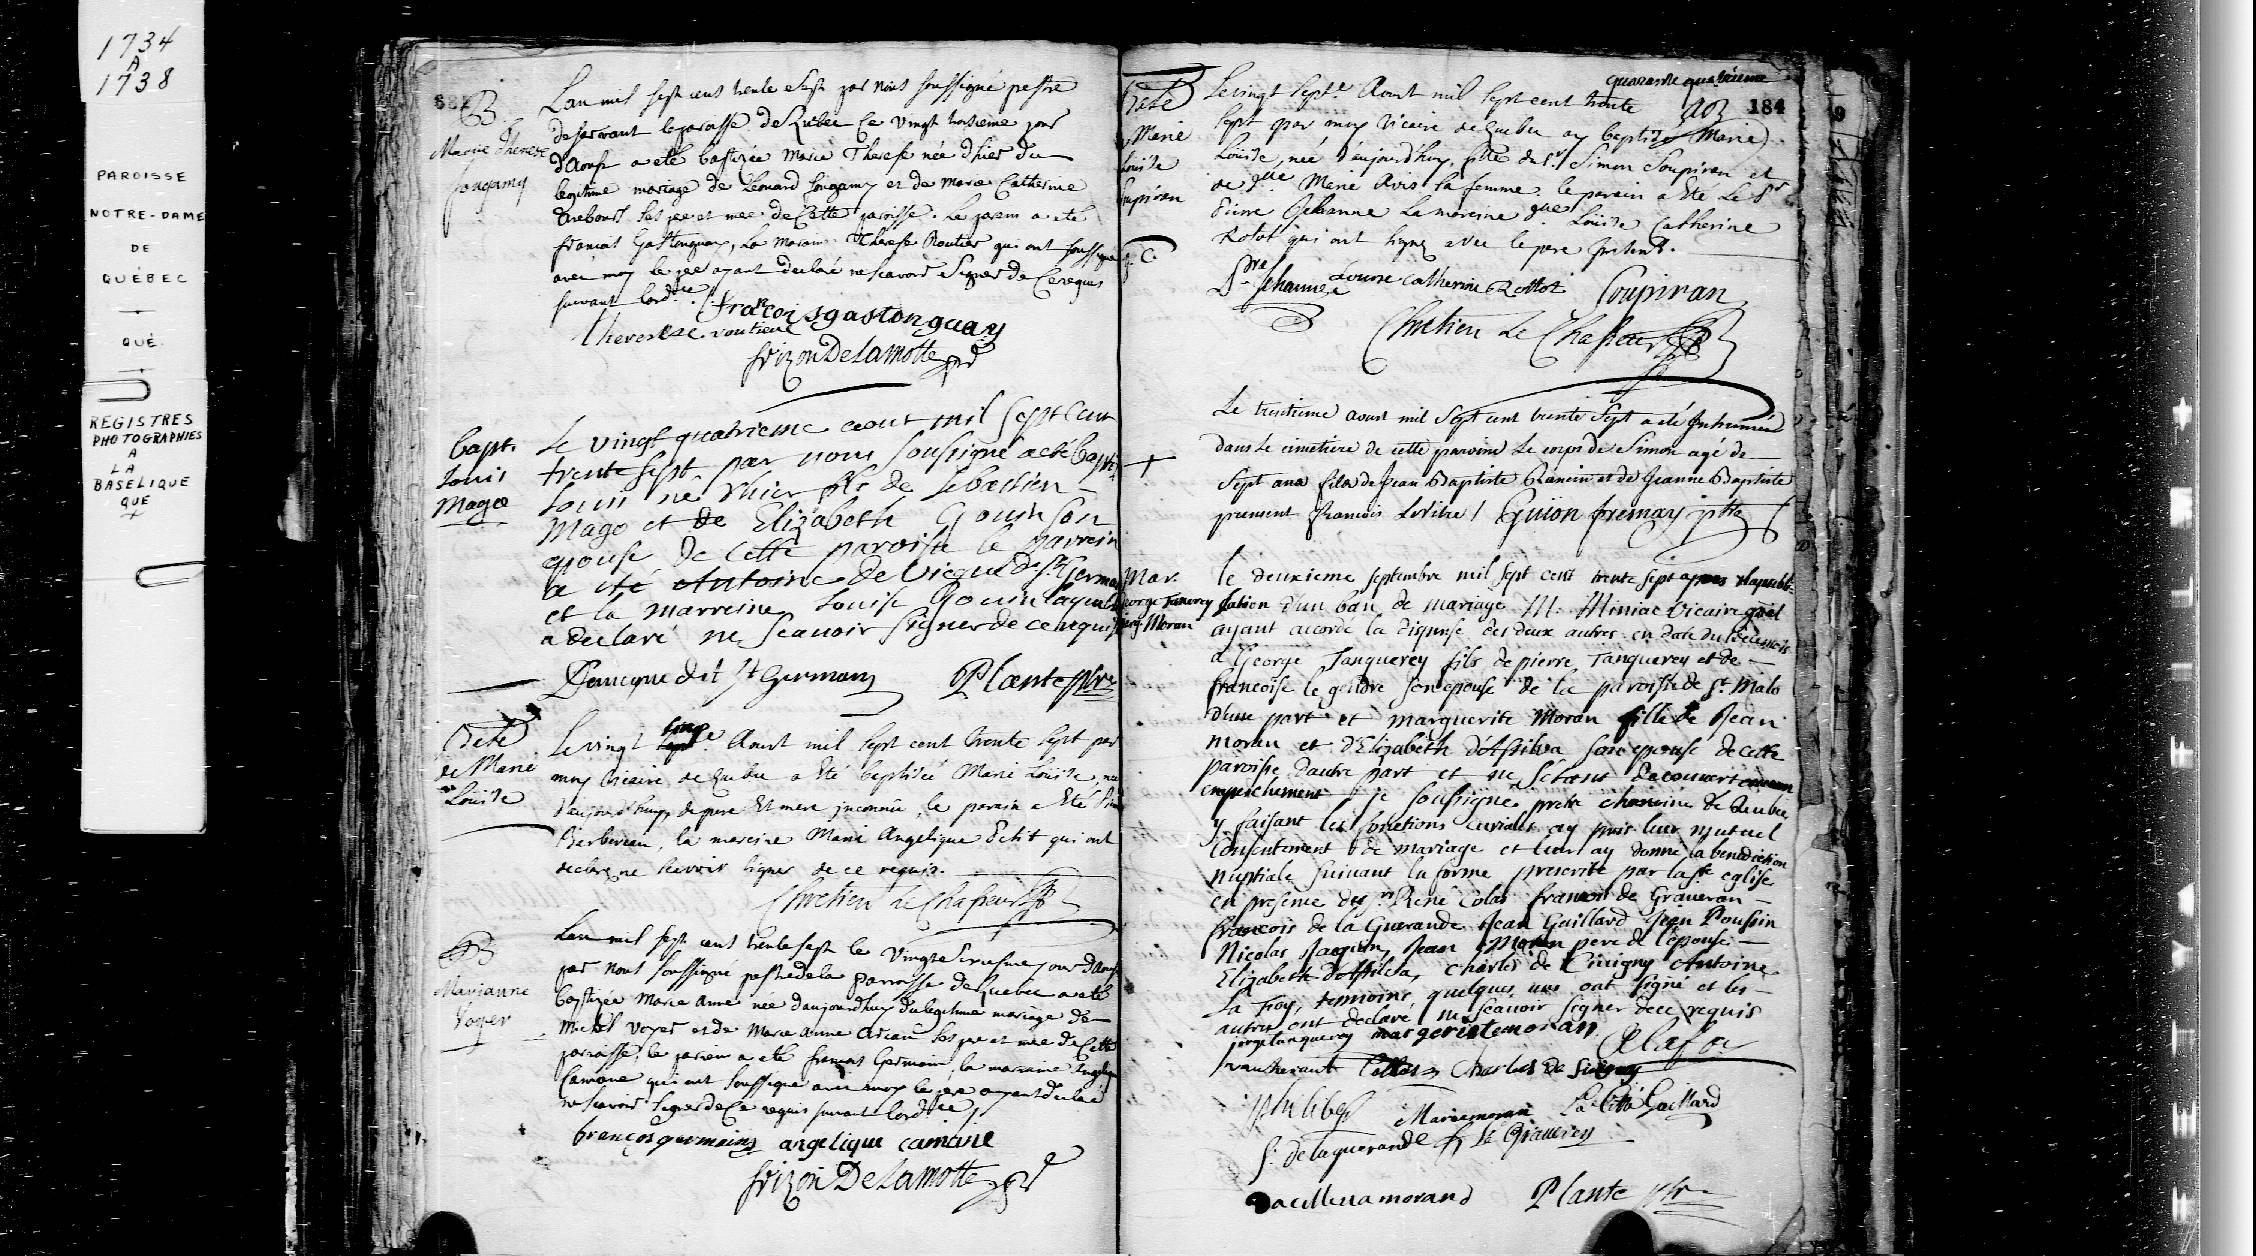 1734
A
1738
PAROISSE
NOTRE-DAME
DE
QUÉBEC
QUÉ.
REGISTRES
PHOTOGRAPHIÉS
A
LA
BASELIQUE
QUE
B.
Marie Therese
Jongamy
Lan mil sept cens trente et sept par nous soussigné prestre
desservant la parroisse de Quebec ce vingt troisieme jour
d'Aoust a eté baptizée Marie Therese née d'hier du
legitime mariage de Leonard Jongamy et de Marie Catherine
ses pere et mere de cette parroisse. Le parein a eté
francois Gastonguay, La Maraine Therese Routier qui ont soussigné
avec moy le pere ayant declaré ne scavoir signer de ce requis
suivant lord.ce
francois gastonguay
therese routiere
frizon De Lamotte ptre
bapt.
Louis
Mage
Le vingt quatrieme aout mil sept cent
trente sept par nous soussigné a eté bapt.
Louis né d'hier fils de Sebastien
Mage et de Elizabeth Gouin son
epouse de cette paroisse le parrein
a été Antoine de Vicque dit St Germain
et la marreine Louise Gouin laquelle
a declaré ne scauoir signer de ce requis
dit St Germain Plante ptre
Bate
de Marie
Louise
Le vingt cinq.e Aoust mil sept cent trente sept par
moy vicaire de Quebec a eté baptisée Marie Louise née
d'aujourd'huy de pere et mere inconnu, le parain a eté
Barbereau, la maraine Marie Angelique Petit qui ont
declaré ne scavoir signer de ce requis.
Chretien Le Chasseur
B
Marianne
Voyer
Lan mil sept cens trente sept le vingt sixiesme jour d'Aoust
par nous soussigné prestre de la parroisse de Quebec a eté
baptizée Marie Anne née d'aujourd'huy du legitime mariage de
Michel Voyer et de Marie Anne ses pere et mere de cette
parroisse, le parein a eté francois Germain, la maraine Angelique
Camane qui ont soussigné avec moy le pere ayant declaré
ne scavoir signer de ce requis suivant lord.ce
francois germains angelique camane
frizon De Lamotte ptre
quarante quatrieme
184
Bate
Marie
Louise
Soupiran
Le vingt sept.e Aoust mil sept cent trente
sept par moy vicaire de Quebec ay baptizé Marie
Louise, née d'aujourd'huy, fille du Sr. Simon Soupiran et
de d.lle Marie Avis sa femme. le parain a eté Le Sr
Pierre Jehanne La maraine d.lle Louise Catherine
Rotot qui ont signé avec le pere present.
P.re Jehanne Louise Catherine Rottot Soupiran
Chretien Le Chasseur
+
Le trentieme aoust mil sept cent trente sept a eté Inhumé
dans le cimetiere de cette paroisse Le corps de Simon agé de
Sept ans fils de Jean Baptiste Rancin et de Jeanne Baptiste
present francois Guion fremay ptre
Mar.
George Tanquerey
Marg. Moran
le deuxieme septembre mil sept cent trente sept apres la publi-
cation d'un ban de mariage M. Miniac Vicaire gñal
ayant accordé la dispense des deux autres en date du
a George Tanquerey fils de pierre Tanquerey et de
francoise le gendre son epouse de la paroisse de St. Malo
d'une part et marguerite Moran fille de Jean
moran et d'Elizabeth d'Assilva son epouse de cette
paroisse d'autre part et ne s'étant decouvert aucun
empêchement je soussigné pretre chanoine de Quebec
y faisant les fonctions curiales ay pris leur mutuel
consentement de mariage et leur ay donné la benediction
nuptiale suivant la forme prescrite par la Ste eglise
en presence des Srs René Colas francois de Graveran
francois de la Guerande Jean Guillard Jean Poussin
Nicolas Jacquin, Jean Moran pere de l'épouse
Elizabeth d'Assilva, Charles de Civigny Antoine
La Froy, temoins quelques uns ont signé et les
autres ont declaré ne scavoir signer de ce requis
jorge tanquerey margerite moran
Charles de
Marie moran Gaillard
f. de la guerande
dacilleua morand Plante ptre